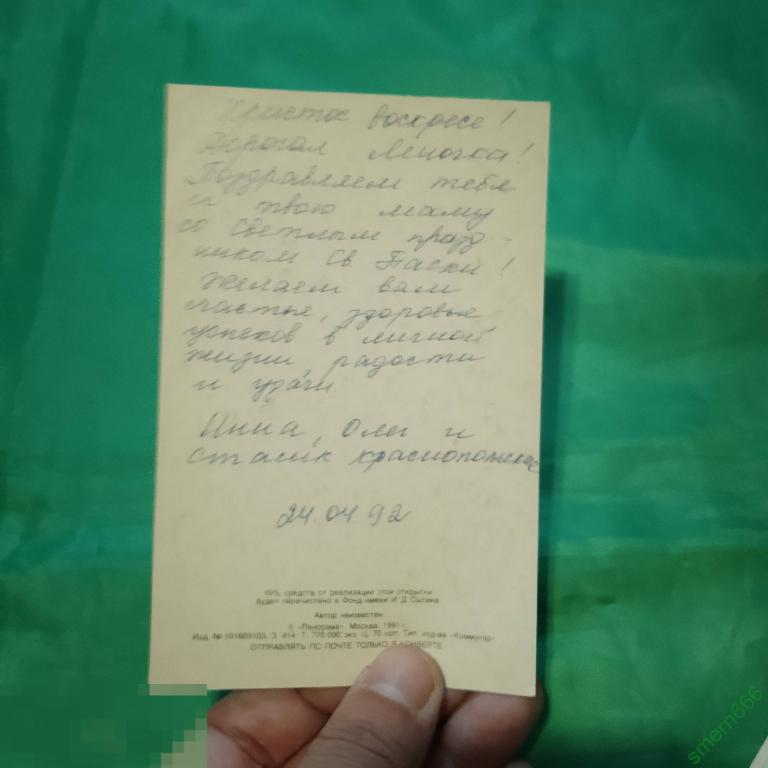 Христос воскресе!
Дорогая Леночка!
Поздравляем тебя
и твою маму
со светлым празд-
ником Св Пасхи!
Желаем вам
счастья, здоровья
успехов в личной
жизни, радости
и удачи
Инна, Олег и
Стасик Краснопольские
24.04.92
10% средств от реализации этой открытки
будет перечислено в Фонд имени И. Д. Сытина
Автор неизвестен
с «Панорама». Москва, 1991 г.
Изд. № 101603103. З. 414. Т. 770 000 экз. Ц. 70 коп. Тип. изд-ва «Коммунар»
ОТПРАВЛЯТЬ ПО ПОЧТЕ ТОЛЬКО В КОНВЕРТЕ
smern666